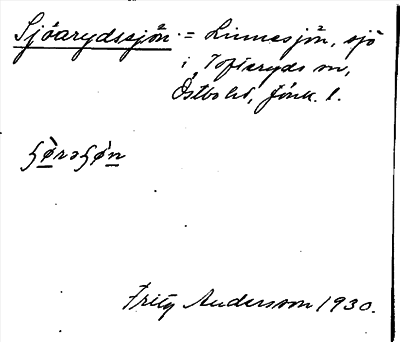 Sjöarydssjön. = Linnesjön, sjö
i Tofteryds sn,
Östbo hd, Jönk. l.
Fritz Andersson 1930.